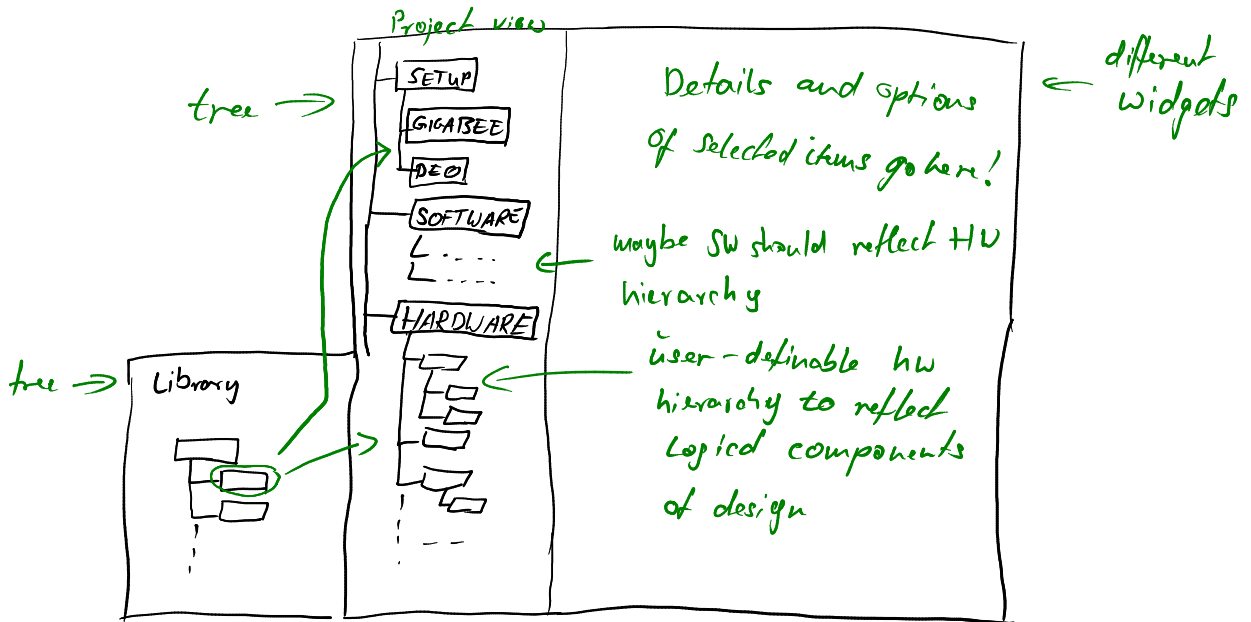 Project view
SETUP
GIGABEE
DEO
SOFTWARE
HARDWARE
tree
tree
Library
Details and options
of selected items go here!
different
widgets
maybe SW should reflect HW
hierarchy
user-definable hw
hierarchy to reflect
Logical components
of design